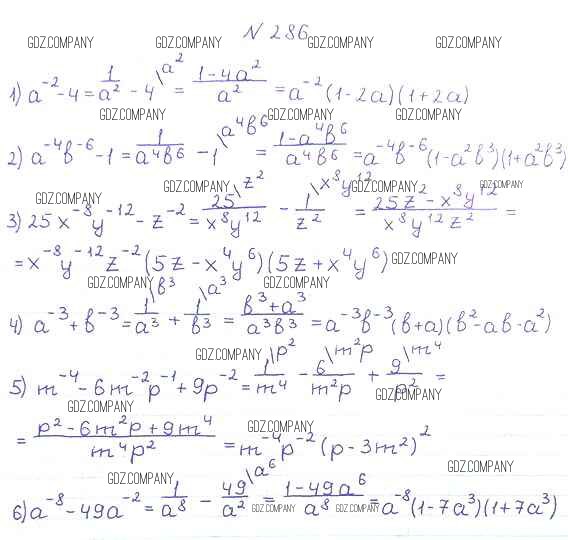 N 286
GDZ.COMPANY GDZ.COMPANY GDZ.COMPANY GDZ.COMPANY
1) a⁻² - 4 = 1/a² - 4 \a² = (1-4a²)/a² = a⁻² (1-2a)(1+2a)
GDZ.COMPANY GDZ.COMPANY GDZ.COMPANY
2) a⁻⁴b⁻⁶ - 1 = 1/(a⁴b⁶) - 1 \a⁴b⁶ = (1-a⁴b⁶)/(a⁴b⁶) = a⁻⁴b⁻⁶ (1-a²b³)(1+a²b³)
GDZ.COMPANY GDZ.COMPANY GDZ.COMPANY GDZ.COMPANY
3) 25x⁻⁸y⁻¹² - z⁻² = 25/(x⁸y¹²) \z² - 1/z² \x⁸y¹² = (25z² - x⁸y¹²)/(x⁸y¹²z²) =
= x⁻⁸y⁻¹²z⁻² (5z - x⁴y⁶)(5z + x⁴y⁶) GDZ.COMPANY
GDZ.COMPANY GDZ.COMPANY
4) a⁻³ + b⁻³ = 1/a³ \b³ + 1/b³ \a³ = (b³+a³)/(a³b³) = a⁻³b⁻³ (b+a)(b²-ab-a²)
GDZ.COMPANY
5) m⁻⁴ - 6m⁻²p⁻¹ + 9p⁻² = 1/m⁴ \p² - 6/(m²p) \m²p + 9/p² \m⁴ =
GDZ.COMPANY GDZ.COMPANY
= (p² - 6m²p + 9m⁴)/(m⁴p²) = m⁻⁴p⁻² (p - 3m²)²
GDZ.COMPANY
GDZ.COMPANY GDZ.COMPANY
6) a⁻⁸ - 49a⁻² = 1/a⁸ - 49/a² \a⁶ = (1-49a⁶)/a⁸ = a⁻⁸ (1-7a³)(1+7a³)
GDZ.COMPANY GDZ.COMPANY